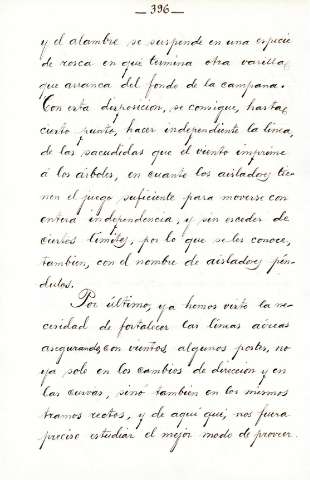 — 396 —
y el alambre se suspende en una especie
de rosca en que termina otra varilla,
que arranca del fondo de la campana.
Con esta disposicion, se consigue, hasta
cierto punto, hacer independiente la linea,
de las sacudidas que el viento imprime
á los árboles, en cuanto los aisladores tie-
nen el juego suficiente para moverse con
entera independencia, y sin esceder de
ciertos limites, por lo que se les conoce,
tambien, con el nombre de aisladores pén-
dulos.
Por último, ya hemos visto la ne-
cesidad de fortalecer las lineas aéreas
asegurando, con vientos, algunos postes, no
ya solo en los cambios de direccion y en
las curvas, sinó tambien en los mismos
tramos rectos, y de aqui que, nos fuera
preciso estudiar el mejor modo de proveer